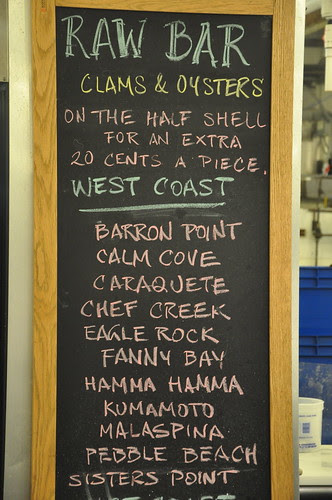 RAW BAR
CLAMS & OYSTERS
ON THE HALF SHELL
FOR AN EXTRA
20 CENTS A PIECE.
WEST COAST
BARRON POINT
CALM COVE
CARAQUETE
CHEF CREEK
EAGLE ROCK
FANNY BAY
HAMMA HAMMA
KUMAMOTO
MALASPINA
PEBBLE BEACH
SISTERS POINT